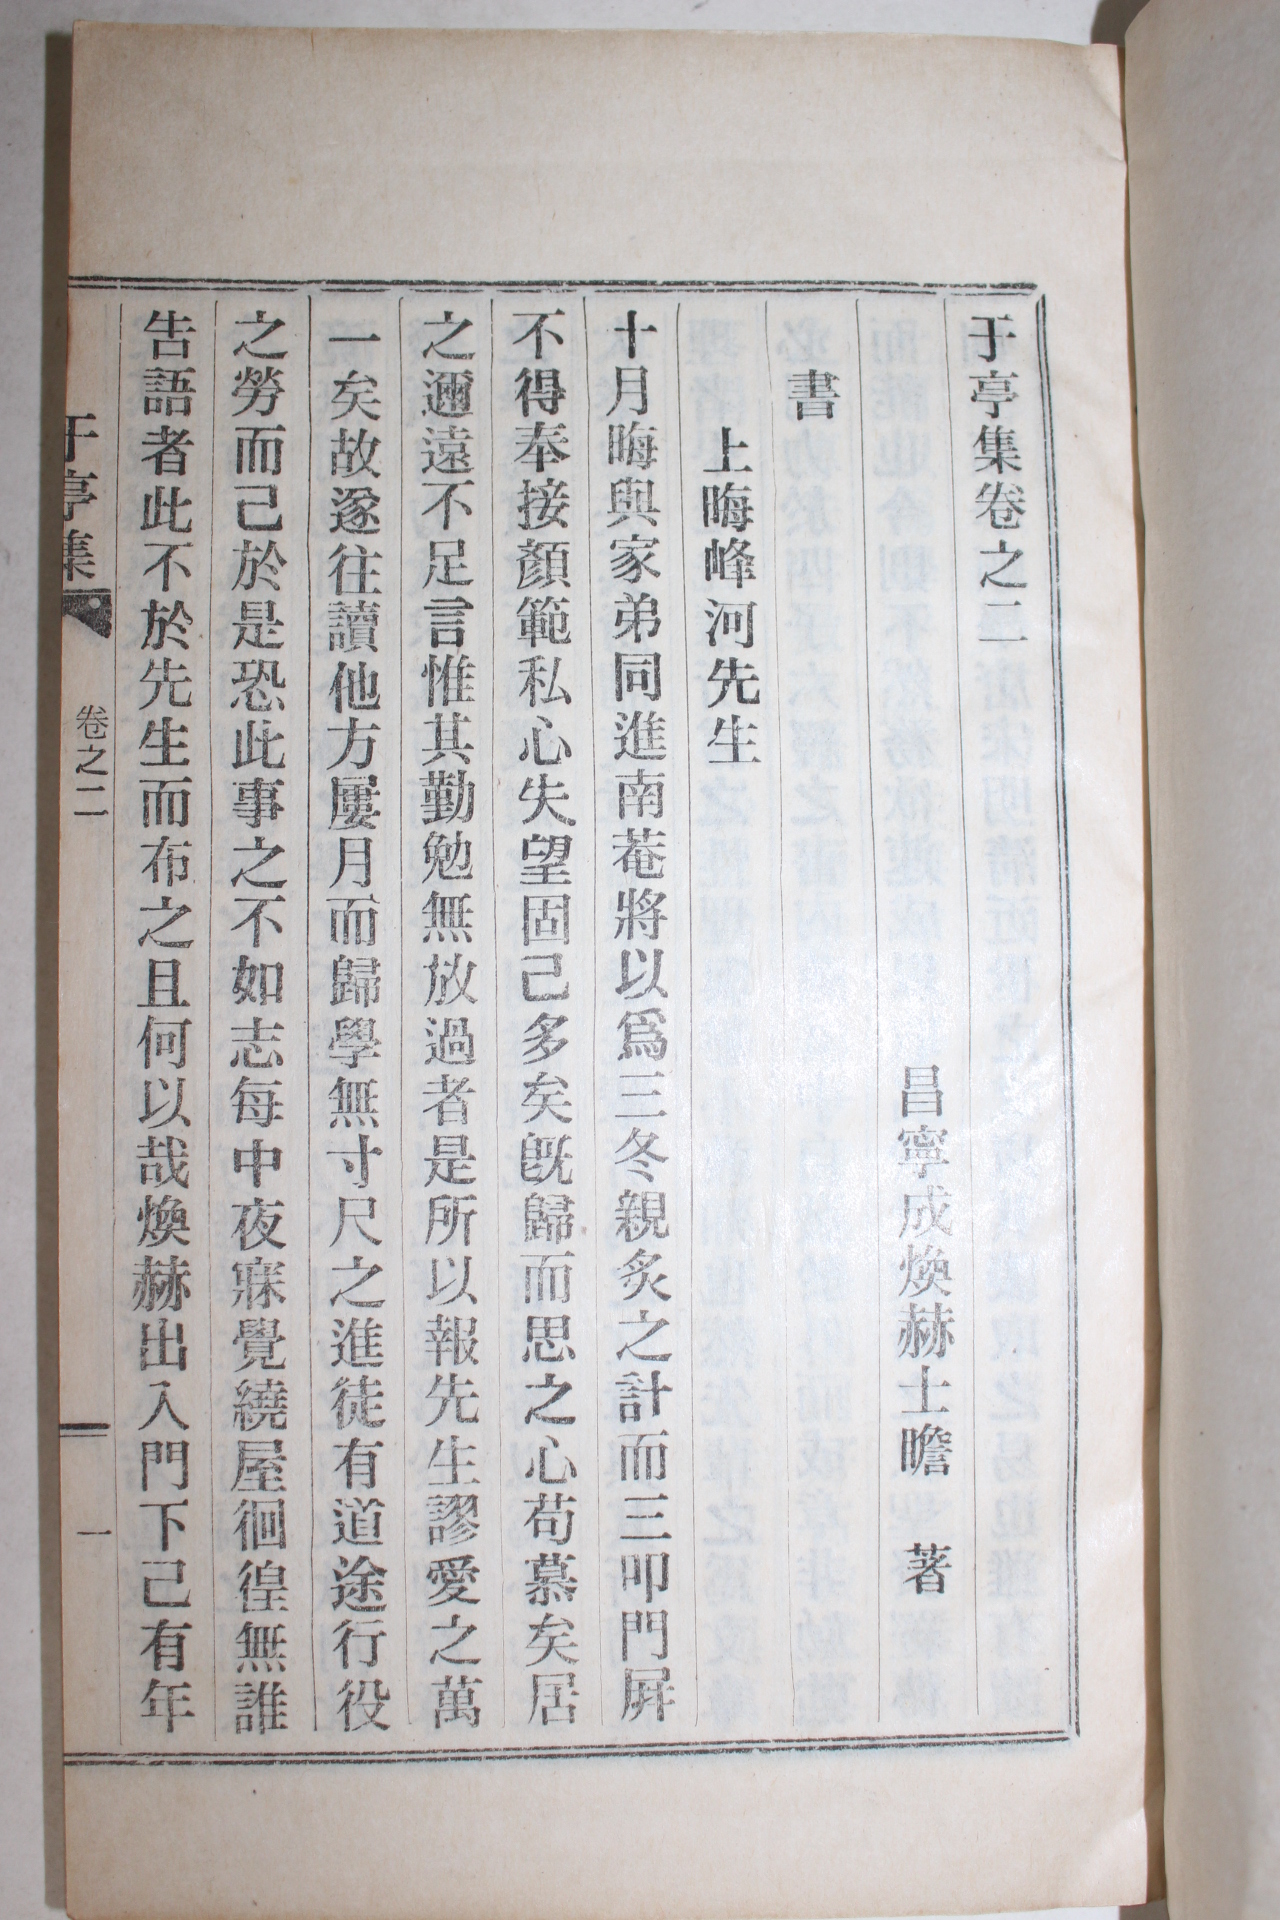 于亭集卷之二
昌寧成煥赫士瞻 著
書
上晦峰河先生
十月晦與家弟同進南菴將以爲三冬親炙之計而三叩門屛
不得奉接顏範私心失望固己多矣旣歸而思之心苟慕矣居
之邇遠不足言惟其勤勉無放過者是所以報先生謬愛之萬
一矣故遂往讀他方屢月而歸學無寸尺之進徒有道途行役
之勞而己於是恐此事之不如志每中夜寐覺繞屋徊徨無誰
告語者此不於先生而布之且何以哉煥赫出入門下己有年
于亭集
卷之二
一